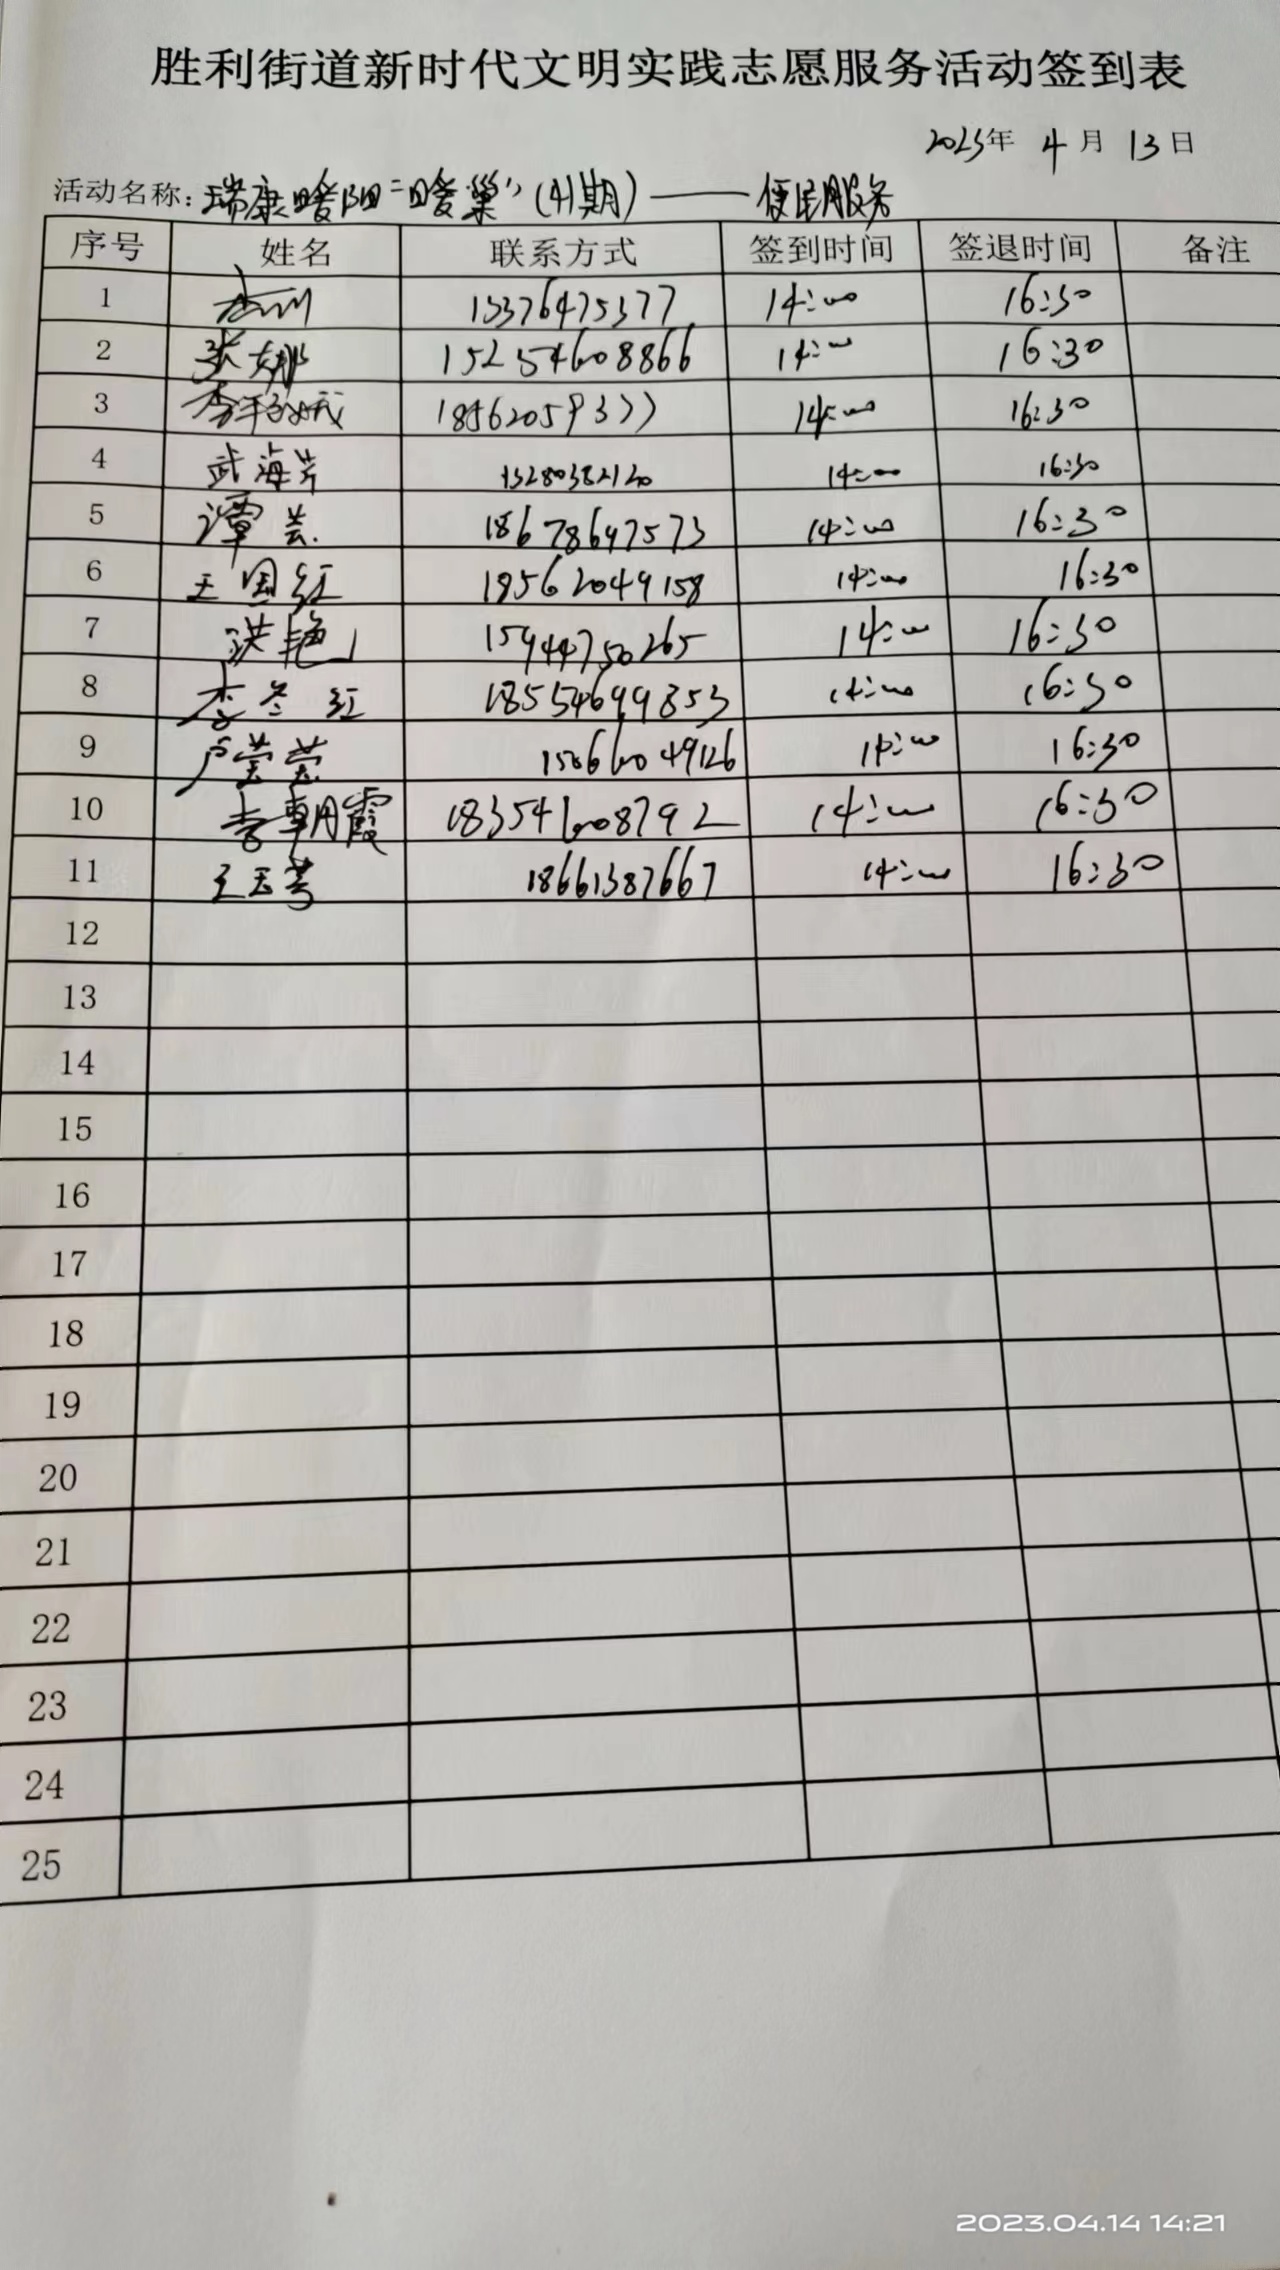 胜利街道新时代文明实践志愿服务活动签到表
2023年 4月 13日
活动名称：瑞康暖阳“暖巢”(41期)——便民服务
序号 姓名 联系方式 签到时间 签退时间 备注
1 13376475377 14:00 16:30
2 张娜 15254608866 14:00 16:30
3 李 14:00 16:30
4 武海芳 13280382120 14:00 16:30
5 谭芸 18678647573 14:00 16:30
6 王国红 18562049158 14:00 16:30
7 洪艳 15944750265 14:00 16:30
8 李冬红 18554699853 14:00 16:30
9 卢莹莹 15066049126 14:00 16:30
10 李朝霞 18354608792 14:00 16:30
11 王玉芳 18661387667 14:00 16:30
12
13
14
15
16
17
18
19
20
21
22
23
24
25
2023.04.14 14:21